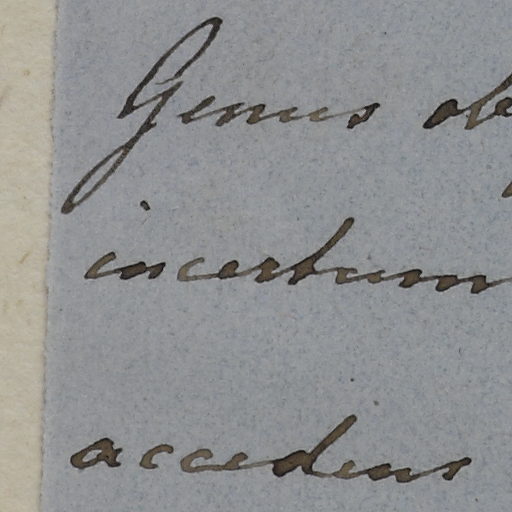 Genus ob
incertum
accedens